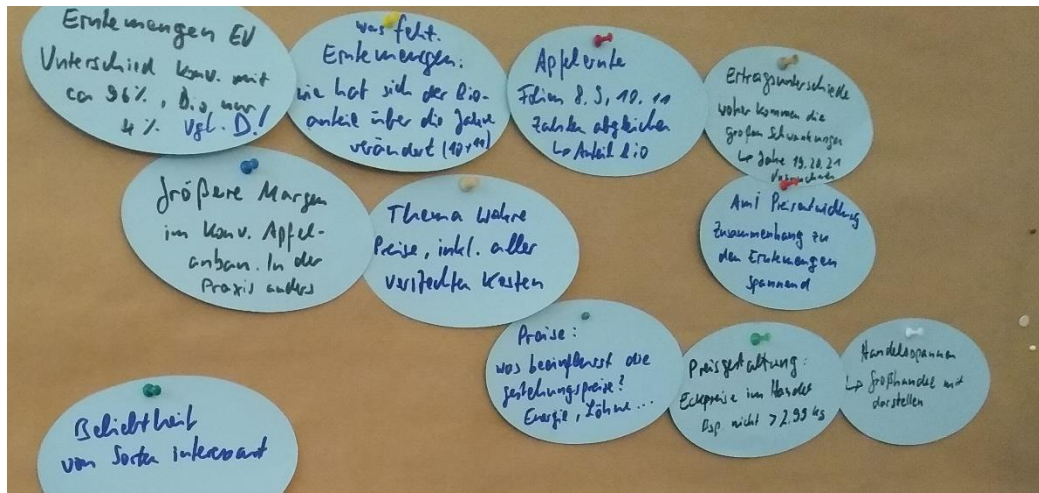 Erntemengen EU
Unterschied konv. mit
ca 96%, Bio nur
4% Vgl. D!
was fehlt.
Erntemengen:
wie hat sich der Bio-
anteile über die Jahre
verändert (10+11)
Apfelernte
Folien 8, 9, 10, 11
Zahlen abgleichen
↳ Anteil Bio
Ertragsunterschiede
woher kommen die
großen Schwankungen
↳ Jahre 19. 20. 21
Größere Margen
im konv. Apfel-
anbau. In der
Praxis anders
Thema wahre
Preise, inkl. aller
versteckten Kosten
Ami Preisentwicklung
Zusammenhang zu
den Erntemengen
spannend
Preise:
was beeinflusst die
gestehungspreise?
Energie, Löhne...
Preisgestaltung:
Eckpreise im Handel
Bsp. nicht >2.99 kg
Handelsspannen
↳ Großhandel mit
darstellen
Beliebtheit
von Sorten interessant